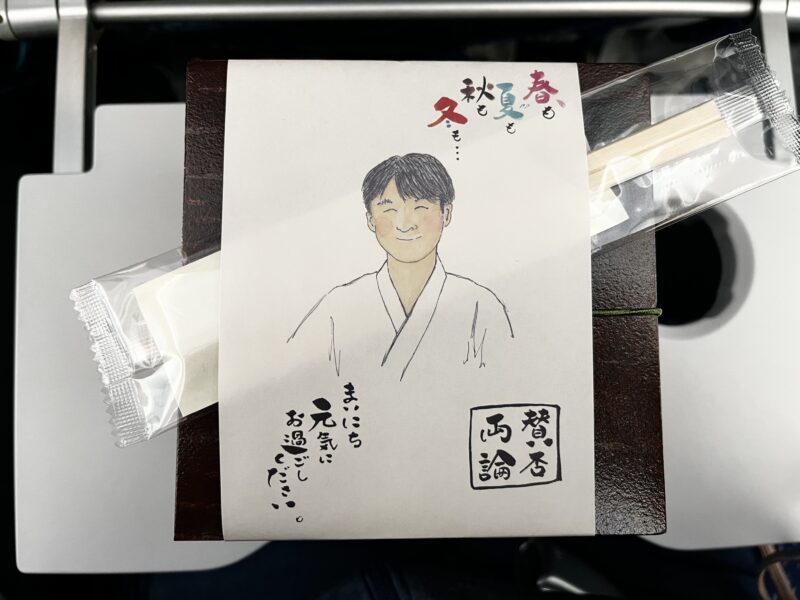 春も、
夏も
秋も
冬も…
まいにち
元気に
お過ごし
ください。
賛否
両論